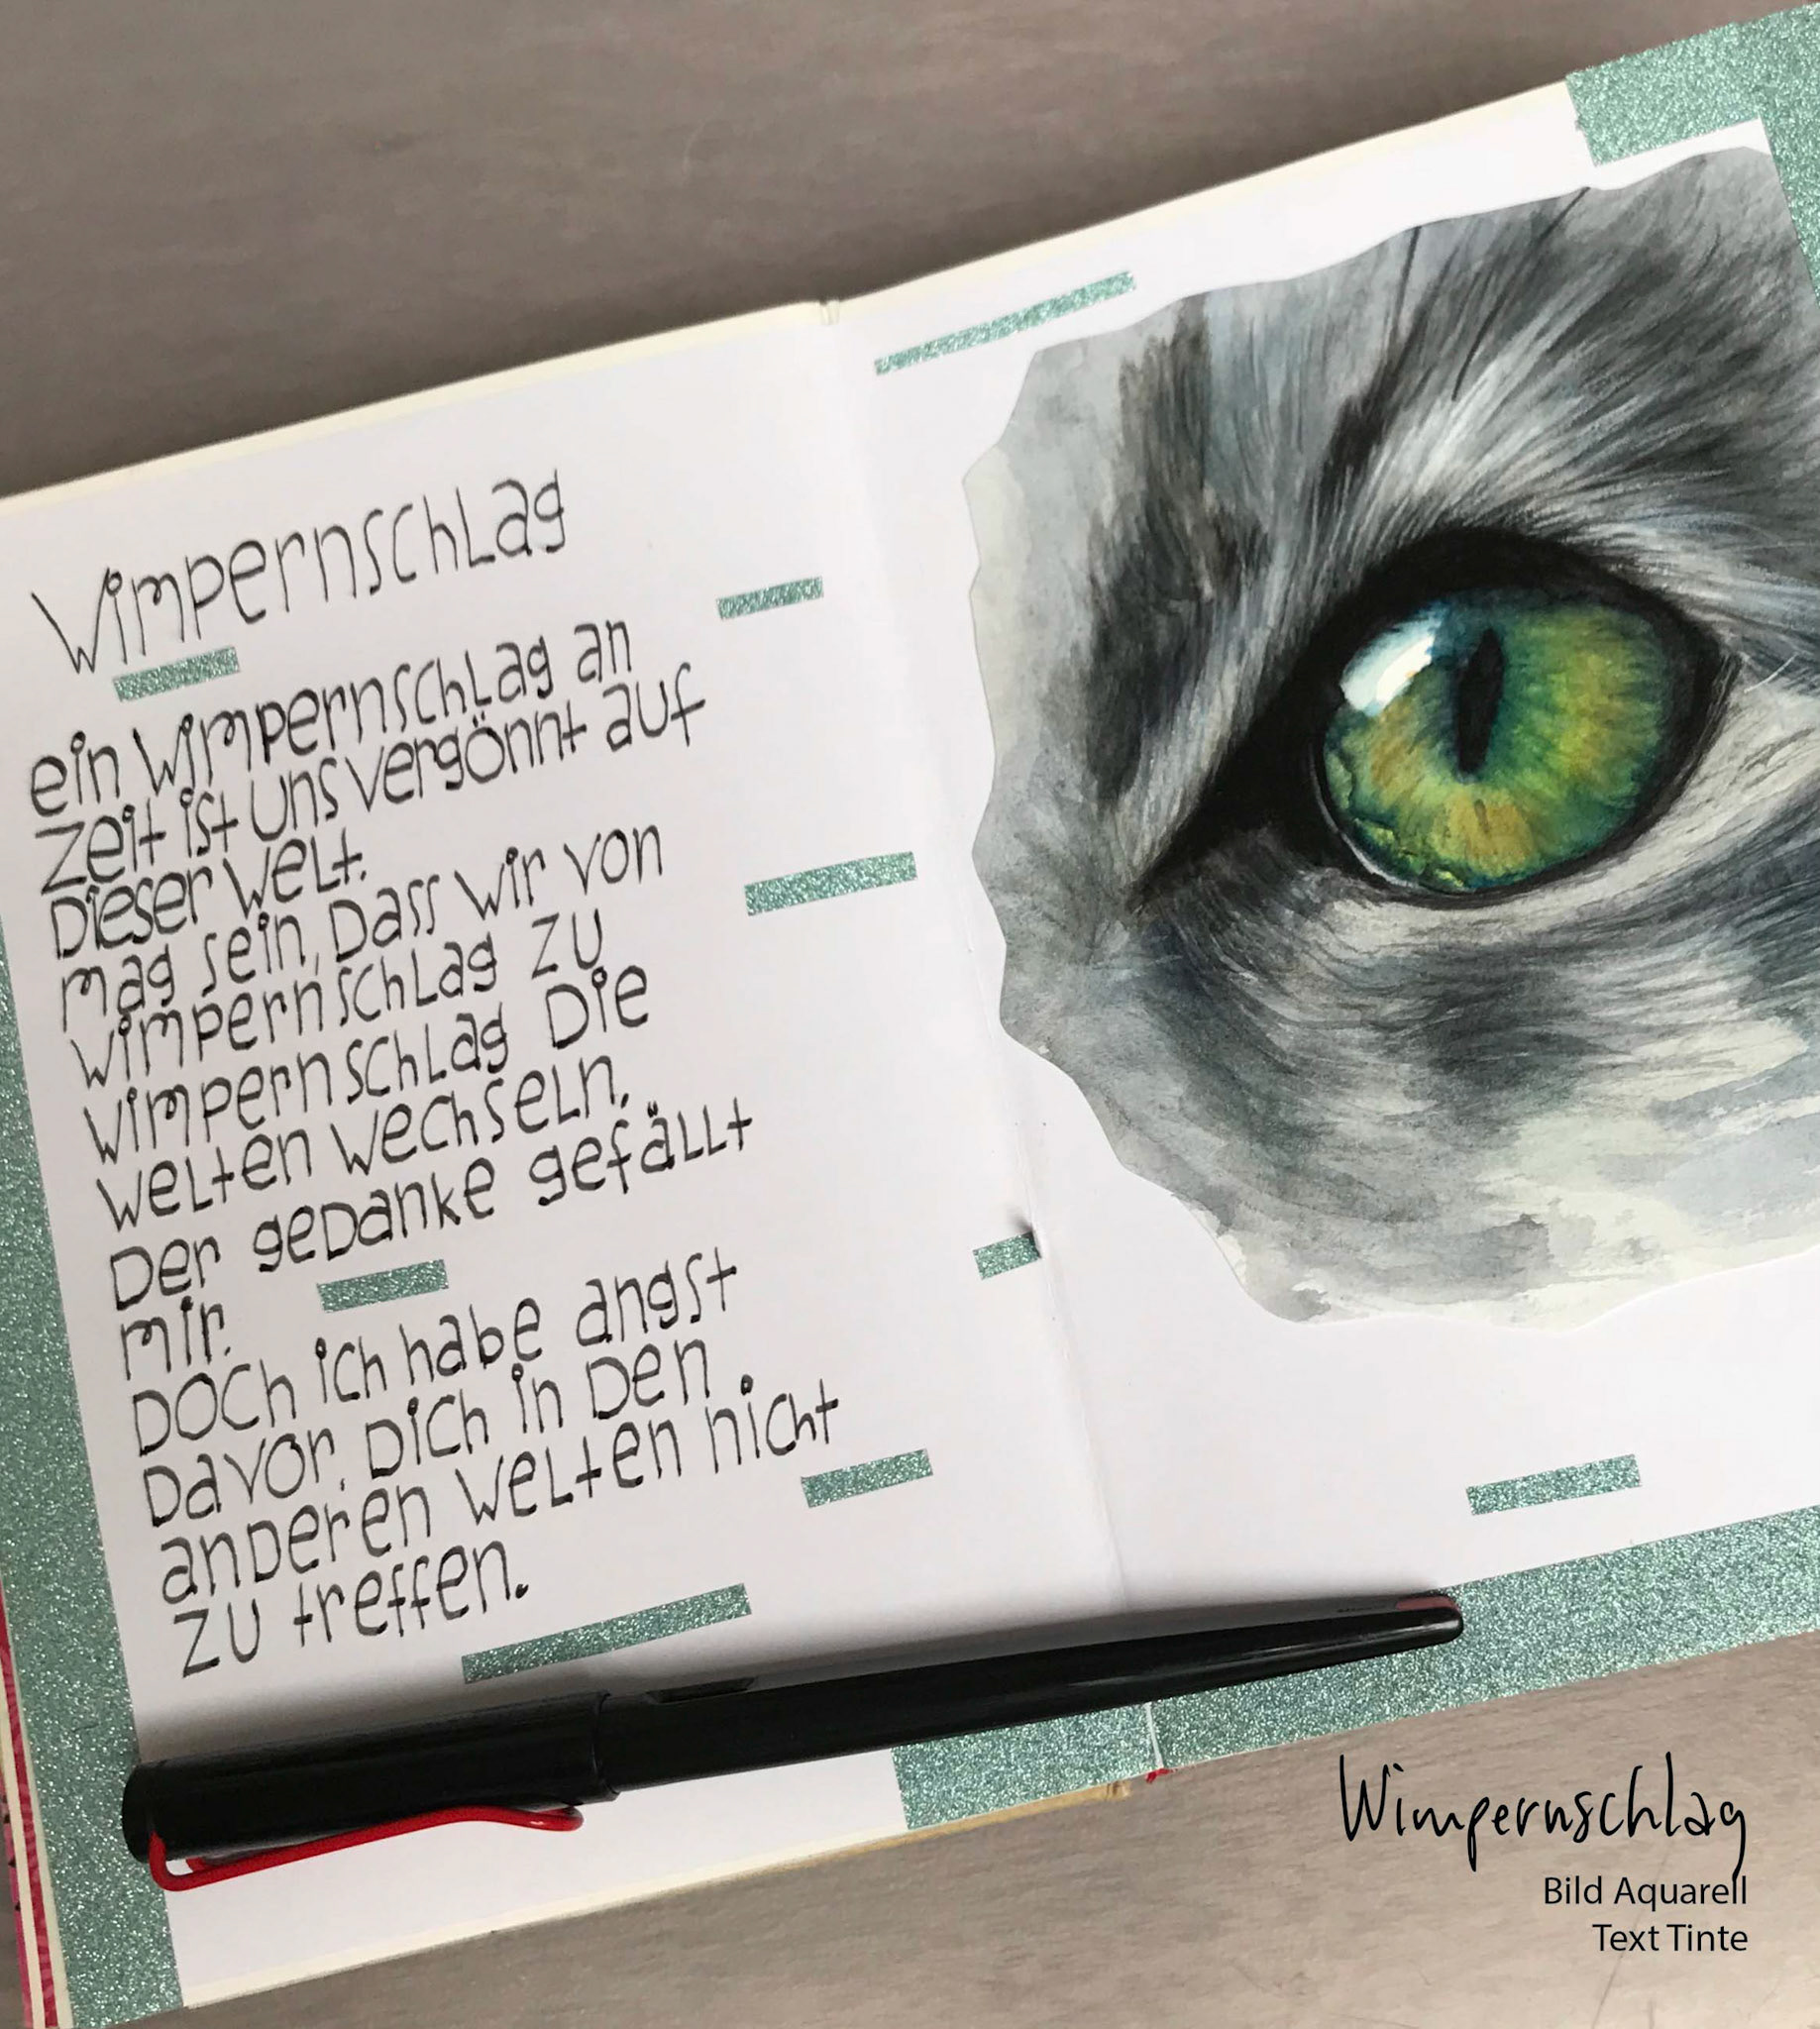 Wimpernschlag
ein wimpernschlag an
zeit ist uns vergönnt auf
Dieser welt.
mag sein, Dass wir von
wimpernschlag zu
wimpernschlag Die
welten wechseln.
Der geDanke gefällt
mir.
Doch ich habe angst
Davor, Dich in Den
anDeren welten nicht
zu treffen.
Wimpernschlag
Bild Aquarell
Text Tinte